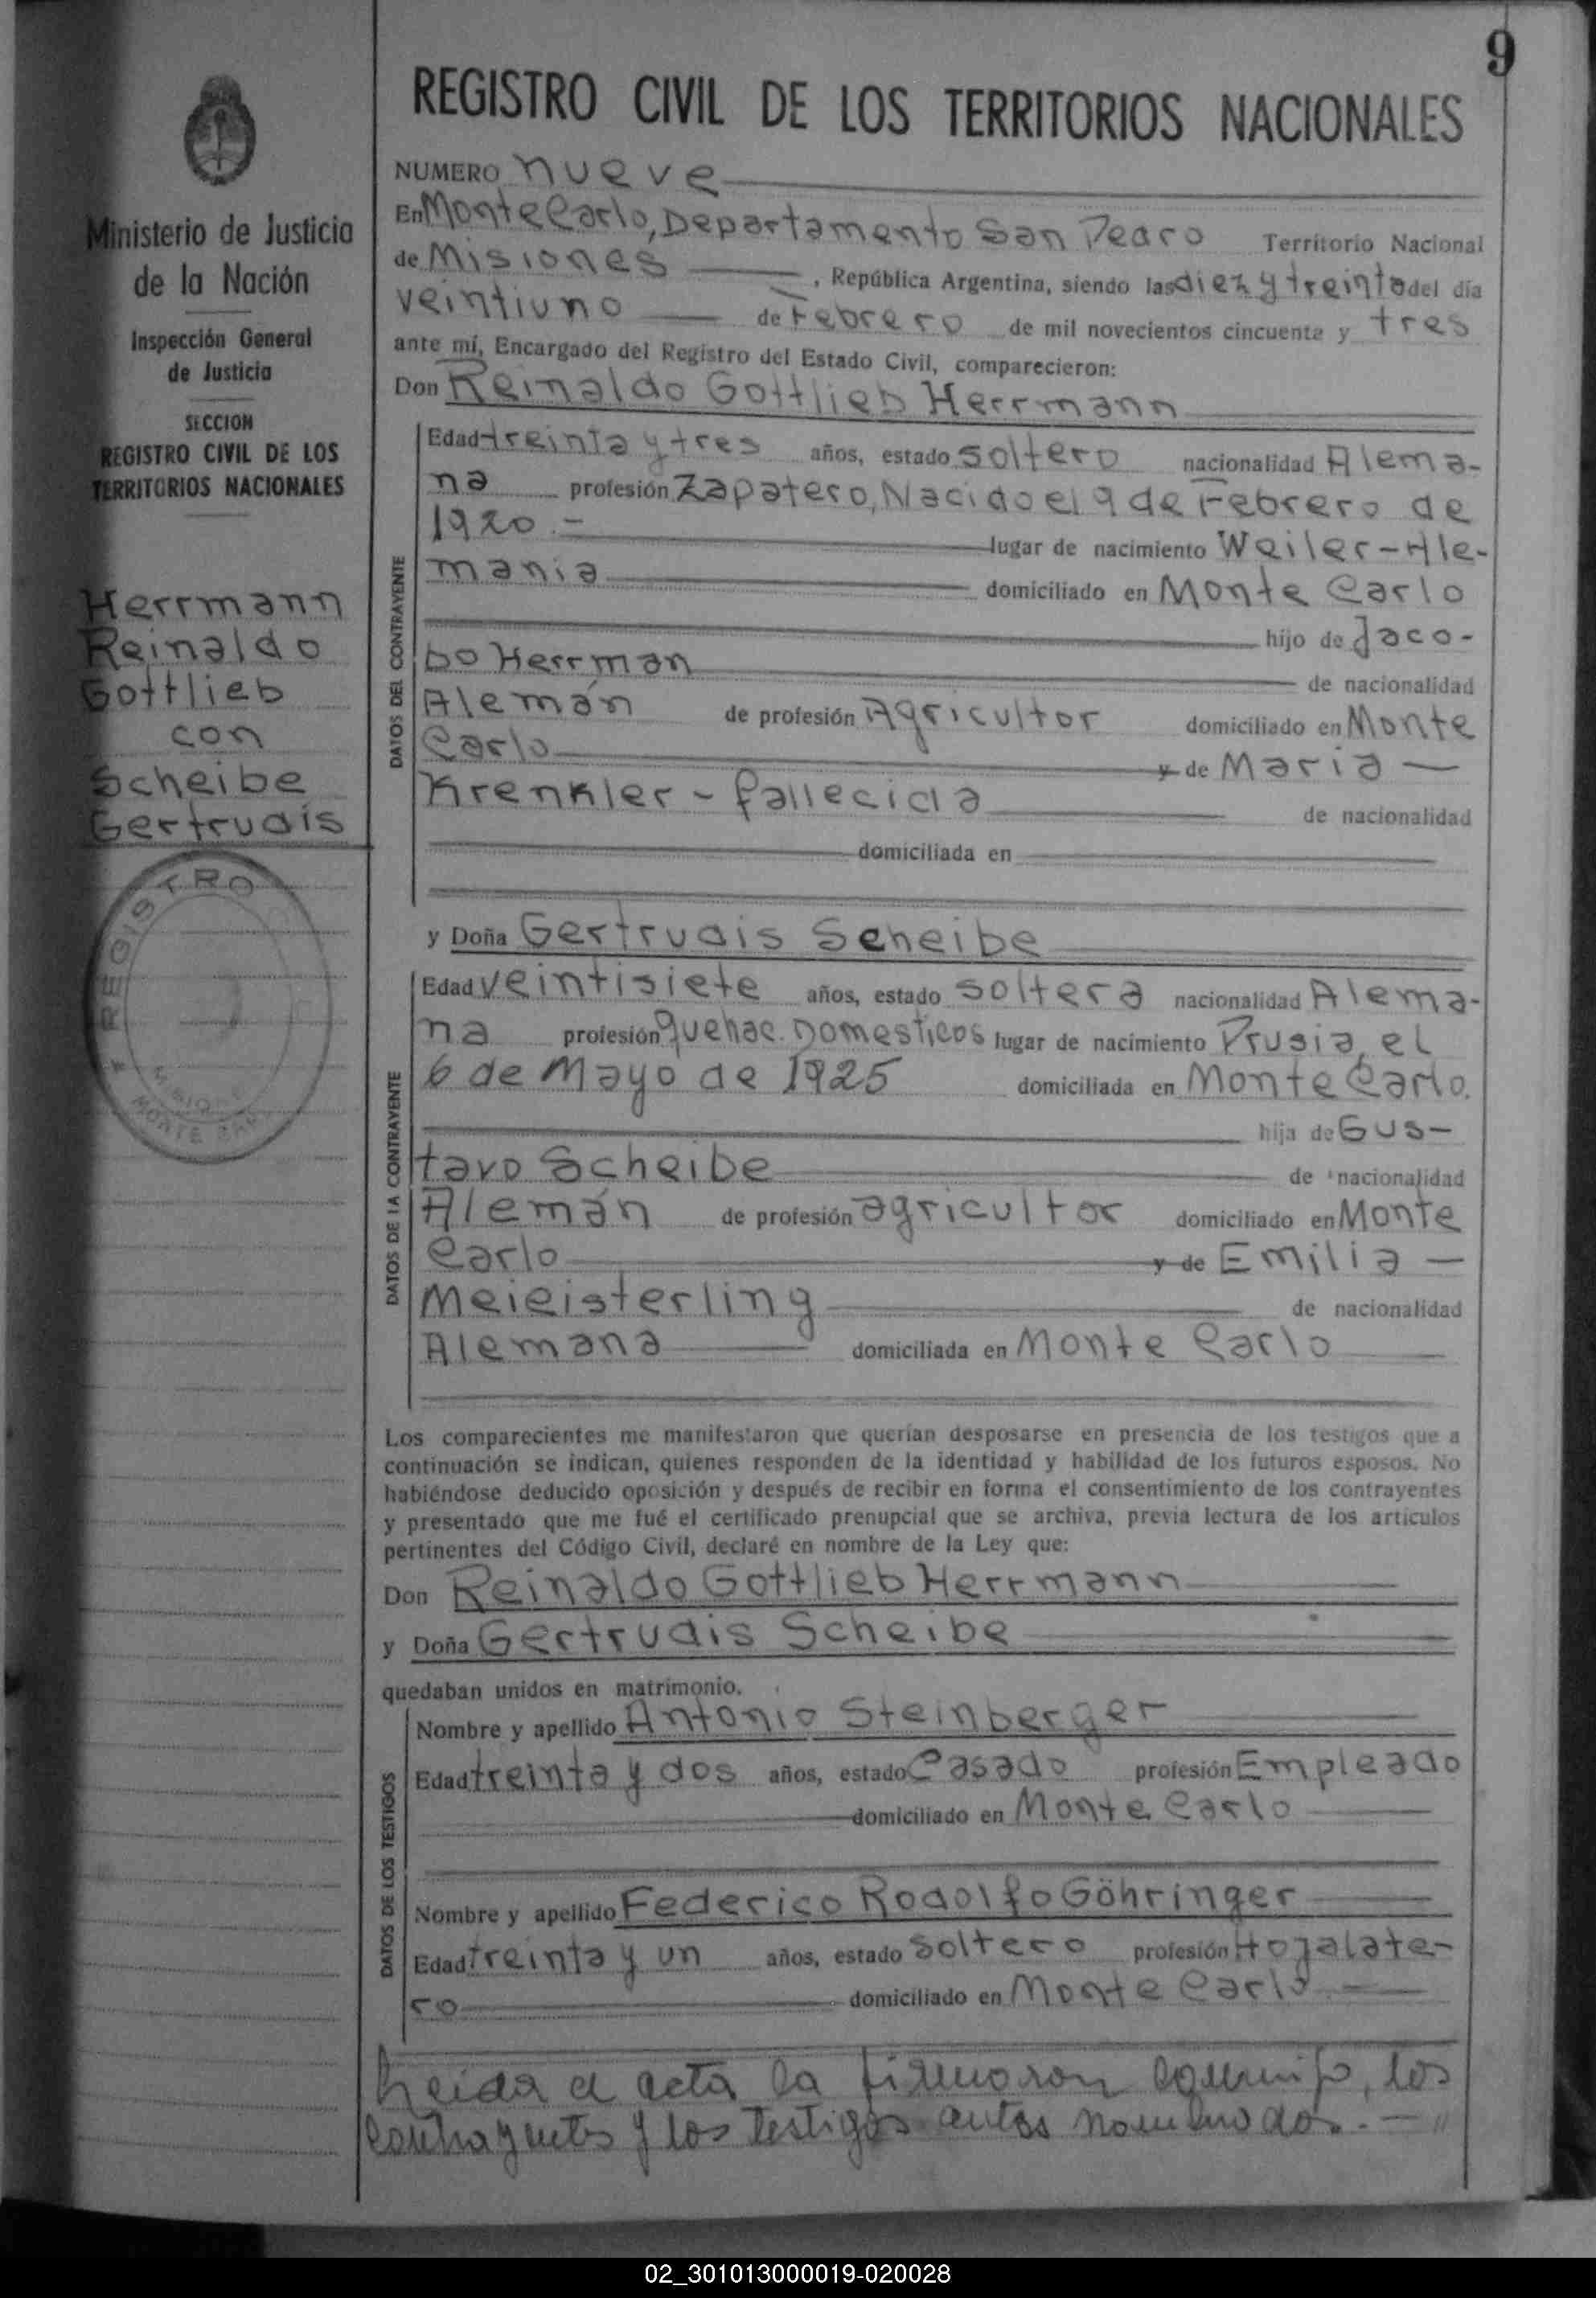 9
REGISTRO CIVIL DE LOS TERRITORIOS NACIONALES
Ministerio de Justicia
de la Nación
Inspección General
de Justicia
SECCION
REGISTRO CIVIL DE LOS
TERRITORIOS NACIONALES
Herrmann
Reinaldo
Gottlieb
con
Scheibe
Gertrudis
REGISTRO
MONTE CARLO
NUMERO nueve
En Monte Carlo, Departamento San Pedro Territorio Nacional
de Misiones, República Argentina, siendo las diez y treinta del día
veintiuno de Febrero de mil novecientos cincuenta y tres
ante mí, Encargado del Registro del Estado Civil, comparecieron:
Don Reinaldo Gottlieb Herrmann
DATOS DEL CONTRAYENTE
Edad treinta y tres años, estado soltero nacionalidad Alema-
na profesión Zapatero, Nacido el 9 de Febrero de
1920.- lugar de nacimiento Weiler-Ale-
mania domiciliado en Monte Carlo
hijo de Jaco-
bo Herrman de nacionalidad
Alemán de profesión Agricultor domiciliado en Monte
Carlo y de Maria
Krenkler - fallecida de nacionalidad
domiciliada en
y Doña Gertrudis Scheibe
DATOS DE LA CONTRAYENTE
Edad veintisiete años, estado soltera nacionalidad Alema-
na profesión quehac. Domesticos lugar de nacimiento Prusia, el
6 de Mayo de 1925 domiciliada en Monte Carlo.
hija de Gus-
tavo Scheibe de nacionalidad
Alemán de profesión agricultor domiciliado en Monte
Carlo y de Emilia
Meieisterling de nacionalidad
Alemana domiciliada en Monte Carlo
Los comparecientes me manifestaron que querían desposarse en presencia de los testigos que a
continuación se indican, quienes responden de la identidad y habilidad de los futuros esposos. No
habiéndose deducido oposición y después de recibir en forma el consentimiento de los contrayentes
y presentado que me fué el certificado prenupcial que se archiva, previa lectura de los artículos
pertinentes del Código Civil, declaré en nombre de la Ley que:
Don Reinaldo Gottlieb Herrmann
y Doña Gertrudis Scheibe
quedaban unidos en matrimonio.
DATOS DE LOS TESTIGOS
Nombre y apellido Antonio Steinberger
Edad treinta y dos años, estado Casado profesión Empleado
domiciliado en Monte Carlo
Nombre y apellido Federico Rodolfo Göhringer
Edad treinta y un años, estado Soltero profesión Hojalate-
ro domiciliado en Monte Carlo
Leida el acta la firmaron conmigo, los
contrayentes y los testigos antes nombrados.-
02_301013000019-020028